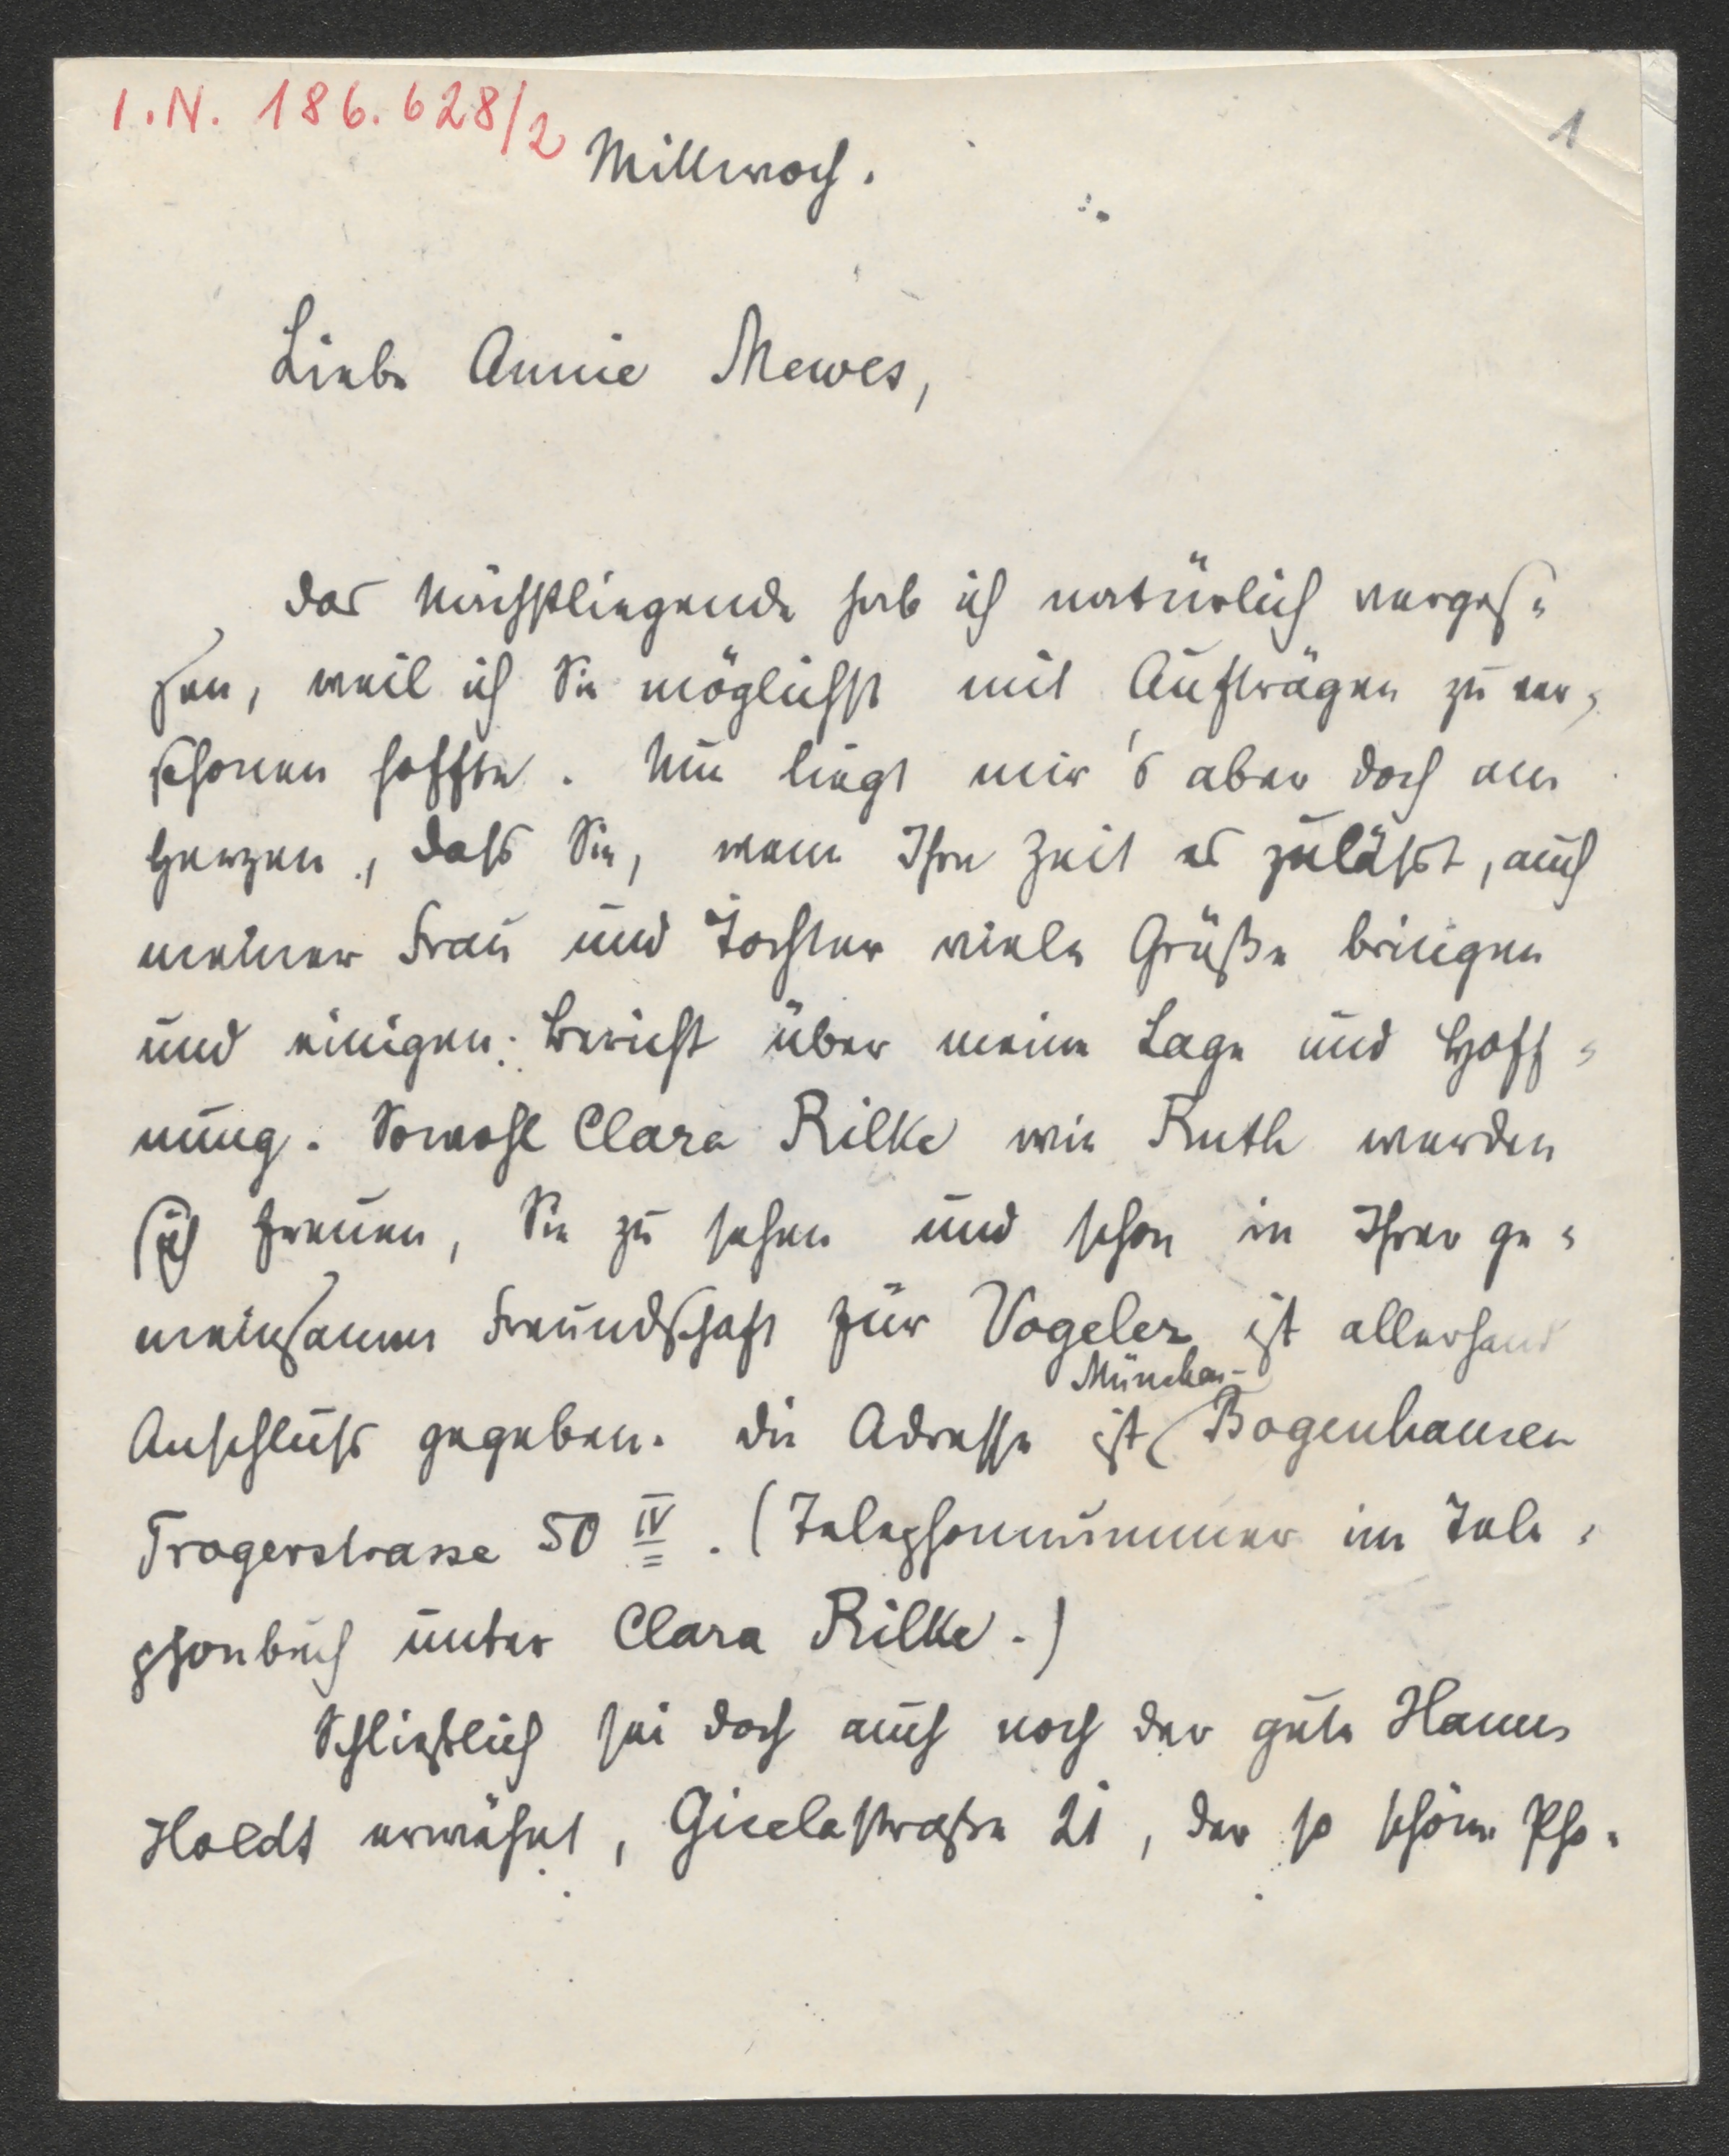 I.N. 186.628/2
1
Mittwoch.
Liebe Annie Mewes,
das Nächstliegende hab ich natürlich verges=
sen, weil ich Sie möglichst mit Aufträgen zu ver=
schonen hoffte. Nun liegt mir's aber doch am
Herzen, dass Sie, wenn Ihre Zeit es zulässt, auch
meiner Frau und Tochter viele Grüße bringen
und einigen Bericht über meine Lage und Hoff=
nung. Sowohl Clara Rilke wie Ruth werden
sich freuen, Sie zu sehen und schon in Ihrer ge=
meinsamen Freundschaft zur Vogeler ist allerhand
München-
Anschluss gegeben. die Adresse ist Bogenhausen
Trogerstrasse 50 IV. (Telephonnummer im Tele=
phonbuch unter Clara Rilke.)
Schließlich sei doch auch noch der gute Hanns
Holdt erwähnt, Giselastraße 21, der so schöne Pho=